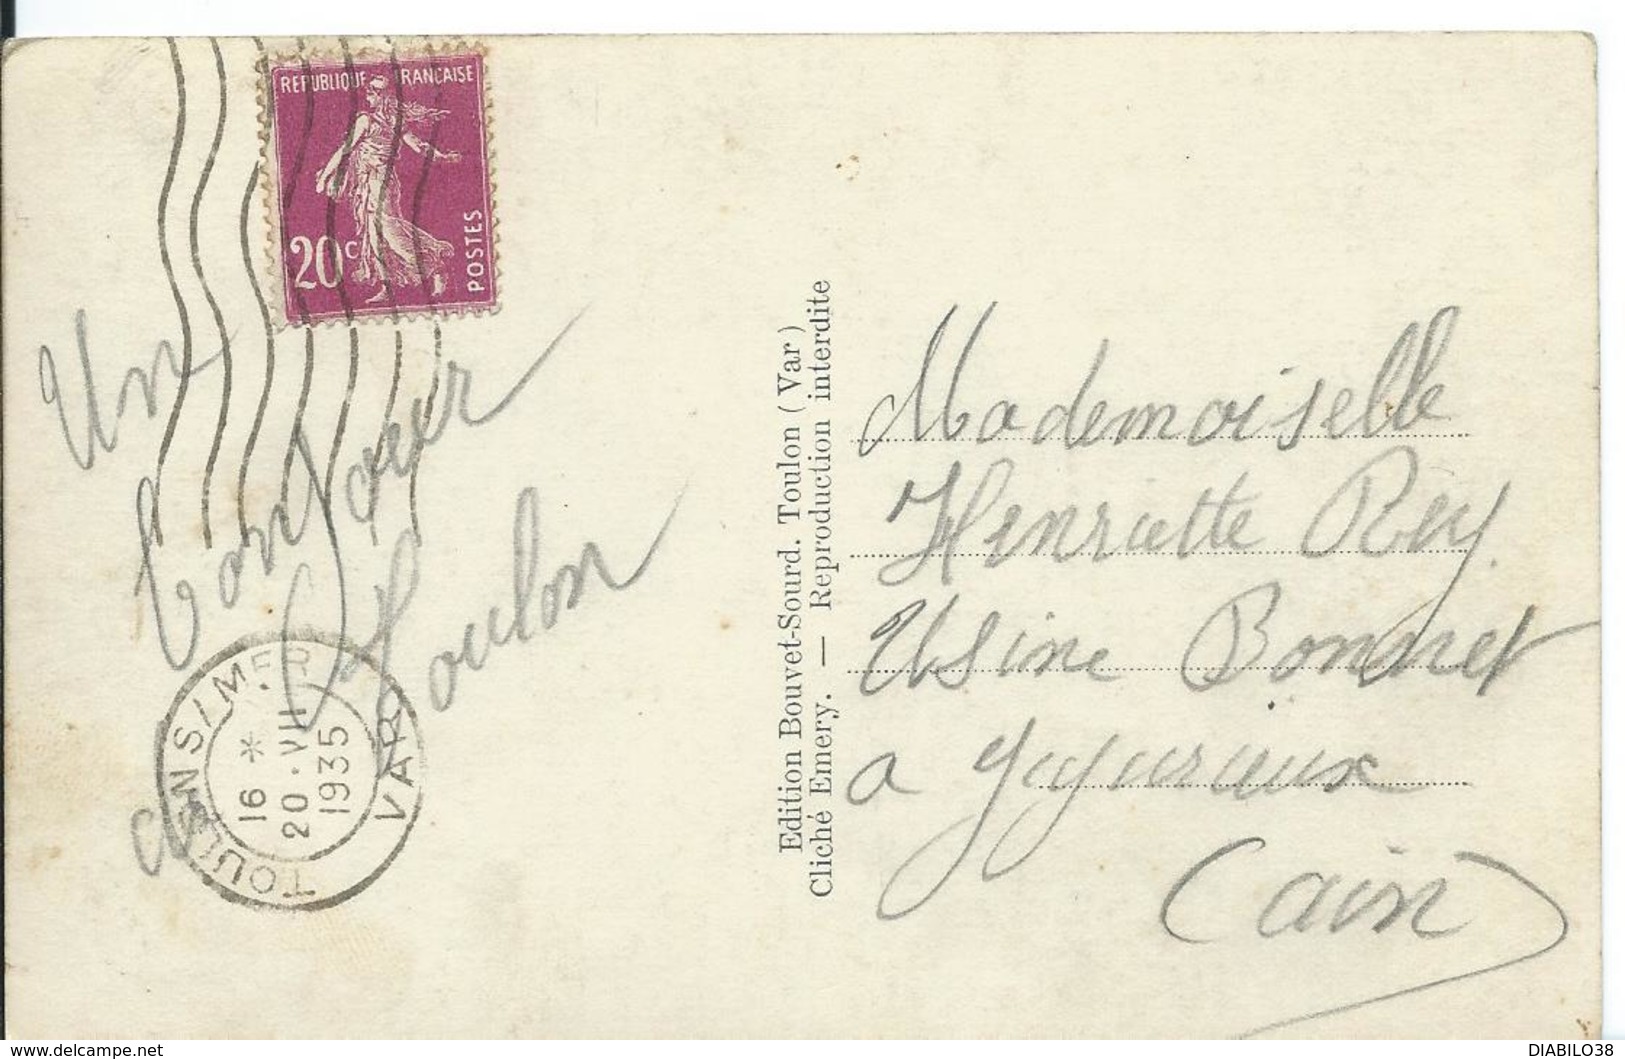 REPUBLIQUE FRANCAISE
20c
POSTES
Un
Bonjour
de Toulon
TOULON S/MER
VAR
16 *
20 · VII
1935
Edition Bouvet-Sourd. Toulon (Var)
Cliché Emery. — Reproduction interdite
Mademoiselle
Henriette Rey
Usine Bonnet
a Jujurieux
(ain)
DIABILO38